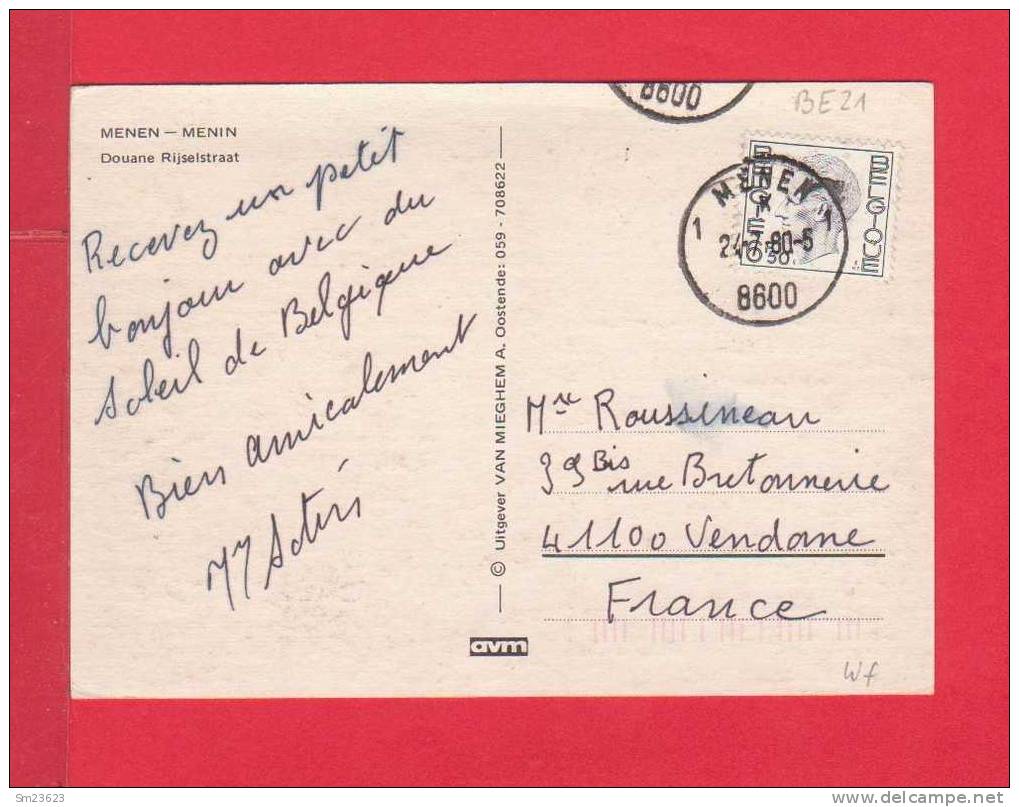 MENEN — MENIN
Douane Rijselstraat
Recevez un petit
bonjour avec du
soleil de Belgique
Bien amicalement
© Uitgever VAN MIEGHEM A. Oostende: 059 - 708622
avm
8600
BE21
BELGIQUE
BELGIË
MENEN
1 1
80-5
8600
Mme Roussineau
Bis rue Bretonnerie
41100 Vendome
France
Wf
Sm23623
delcampe.net